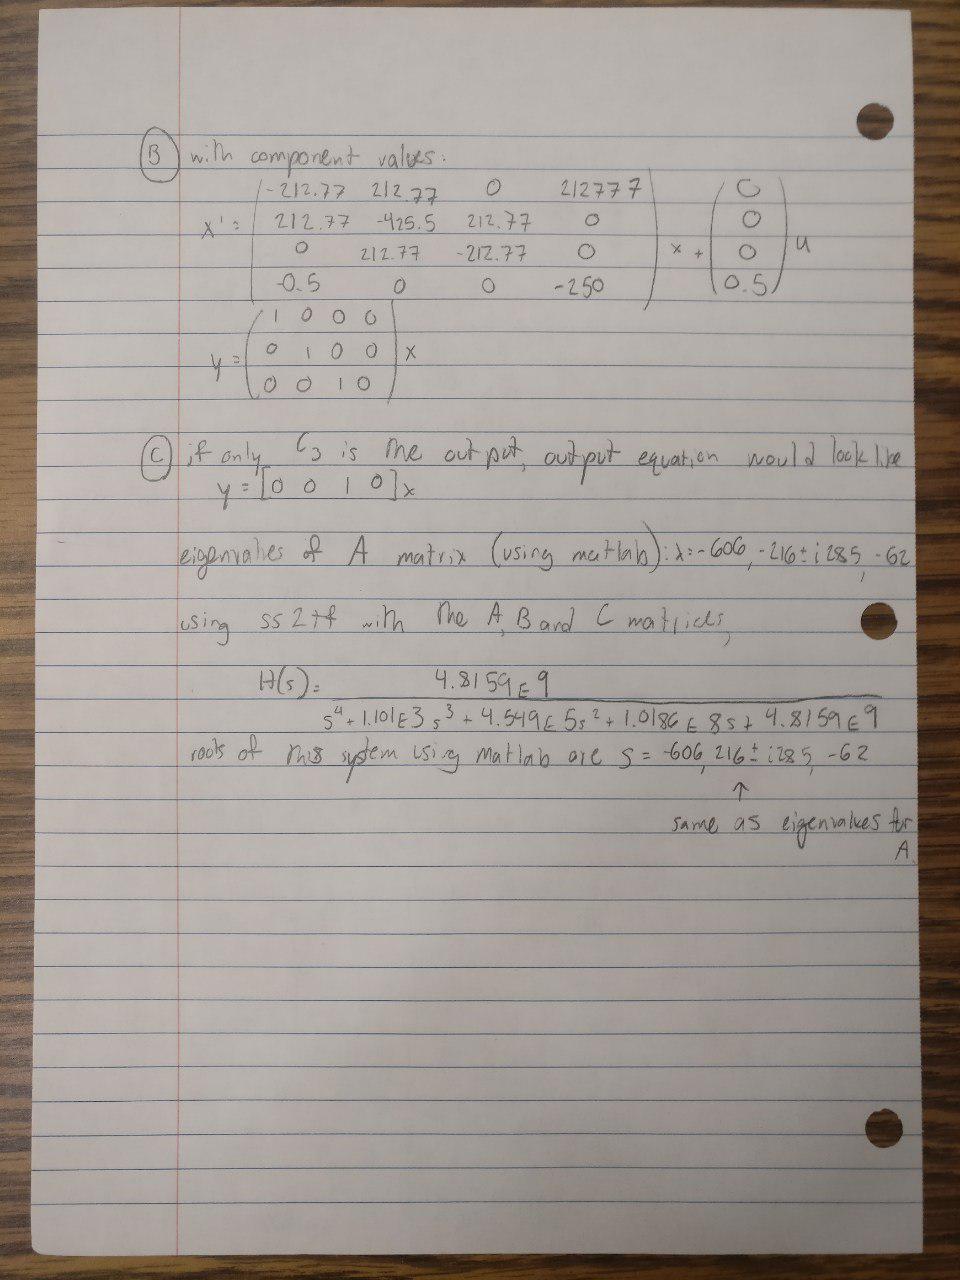 B with component values:
x' = ( -212.77 212.77 0 212777
212.77 -425.5 212.77 0
0 212.77 -212.77 0
-0.5 0 0 -250 ) x + ( 0
0
0
0.5 ) u
y = ( 1 0 0 0
0 1 0 0
0 0 1 0 ) x
C if only C3 is the output, output equation would look like
y = [0 0 1 0] x
eigenvalues of A matrix (using matlab): λ = -606, -216 ± i285, -62
using ss2tf with the A, B and C matricies,
H(s) = 4.8159E9
s^4 + 1.101E3 s^3 + 4.549E5 s^2 + 1.0186E8 s + 4.8159E9
roots of this system using matlab are s = -606, 216 ± i285, -62
↑
same as eigenvalues for
A